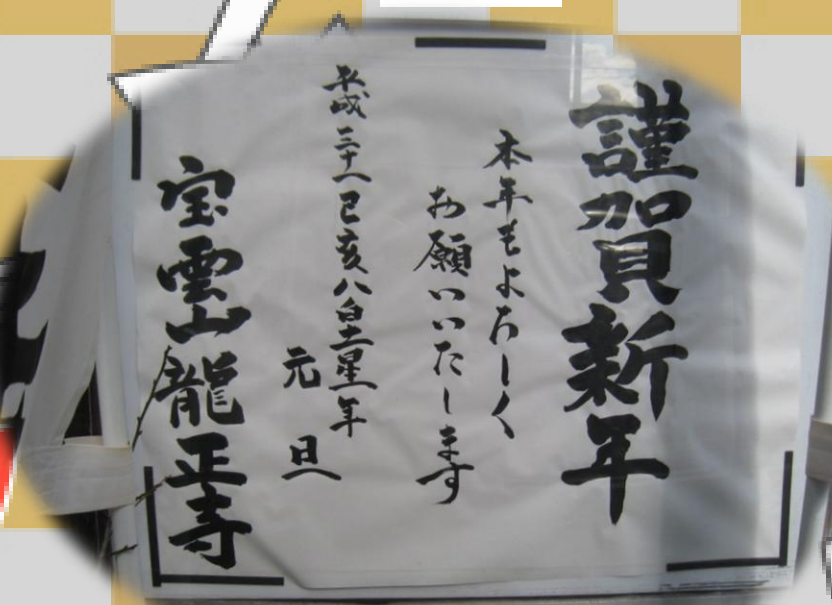 謹賀新年
本年もよろしく
お願いいたします
平成三十一己亥八白土星年
元旦
宝雲山龍正寺